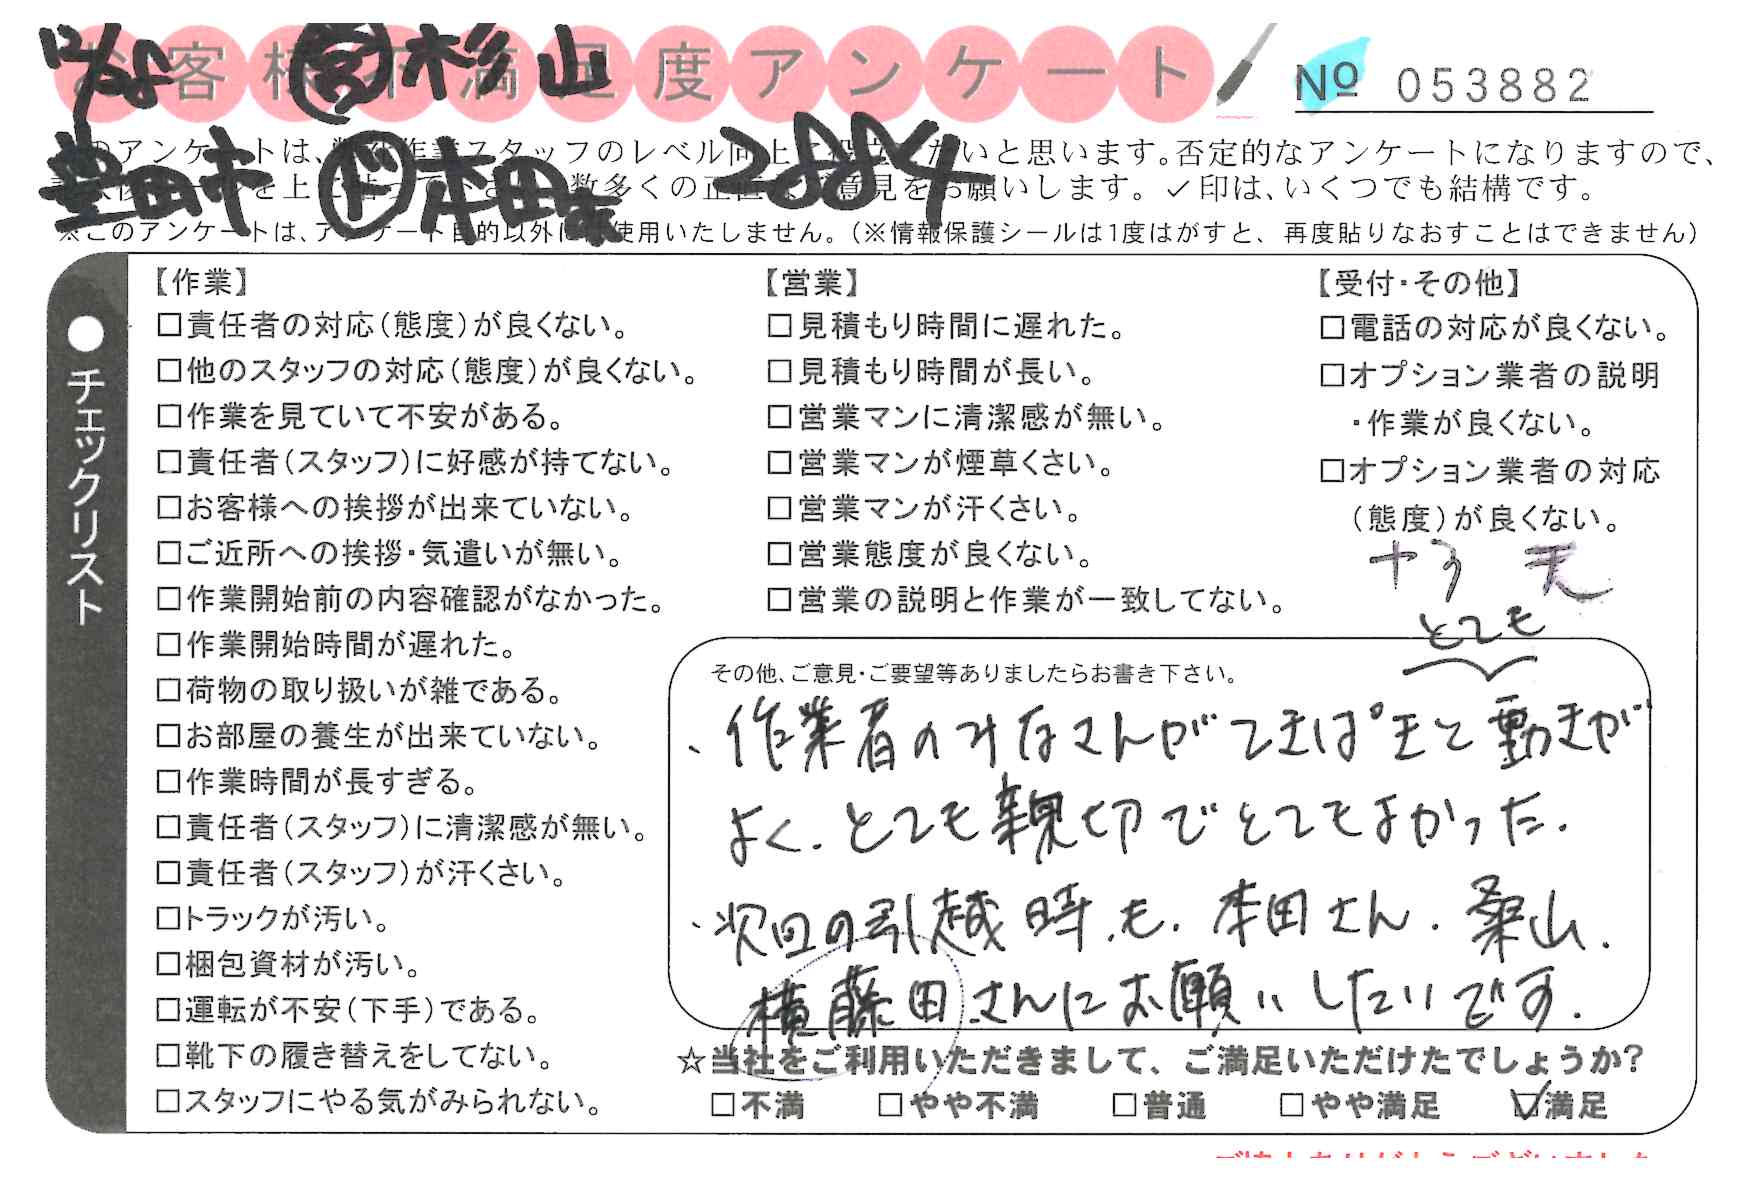 お客様不満足度アンケート
Nº 053882
12/25 営 杉山
豊田市 ド 本田 2884
このアンケートは、弊社作業スタッフのレベル向上に役立てたいと思います。否定的なアンケートになりますので、
を上に貼って下さい。数多くの正直なご意見をお願いします。✓印は、いくつでも結構です。
※このアンケートは、アンケート目的以外には使用いたしません。(※情報保護シールは1度はがすと、再度貼りなおすことはできません)
●チェックリスト
【作業】
□責任者の対応(態度)が良くない。
□他のスタッフの対応(態度)が良くない。
□作業を見ていて不安がある。
□責任者(スタッフ)に好感が持てない。
□お客様への挨拶が出来ていない。
□ご近所への挨拶・気遣いが無い。
□作業開始前の内容確認がなかった。
□作業開始時間が遅れた。
□荷物の取り扱いが雑である。
□お部屋の養生が出来ていない。
□作業時間が長すぎる。
□責任者(スタッフ)に清潔感が無い。
□責任者(スタッフ)が汗くさい。
□トラックが汚い。
□梱包資材が汚い。
□運転が不安(下手)である。
□靴下の履き替えをしてない。
□スタッフにやる気がみられない。
【営業】
□見積もり時間に遅れた。
□見積もり時間が長い。
□営業マンに清潔感が無い。
□営業マンが煙草くさい。
□営業マンが汗くさい。
□営業態度が良くない。
□営業の説明と作業が一致してない。
【受付・その他】
□電話の対応が良くない。
□オプション業者の説明
・作業が良くない。
□オプション業者の対応
(態度)が良くない。
とても
その他、ご意見・ご要望等ありましたらお書き下さい。
、作業者のみなさんがてきぱきと動きが
よく、とても親切でとてもよかった.
・次回の引越時も、本田さん、桑山、
横藤田さんにお願いしたいです.
☆当社をご利用いただきまして、ご満足いただけたでしょうか?
□不満 □やや不満 □普通 □やや満足 ☑満足